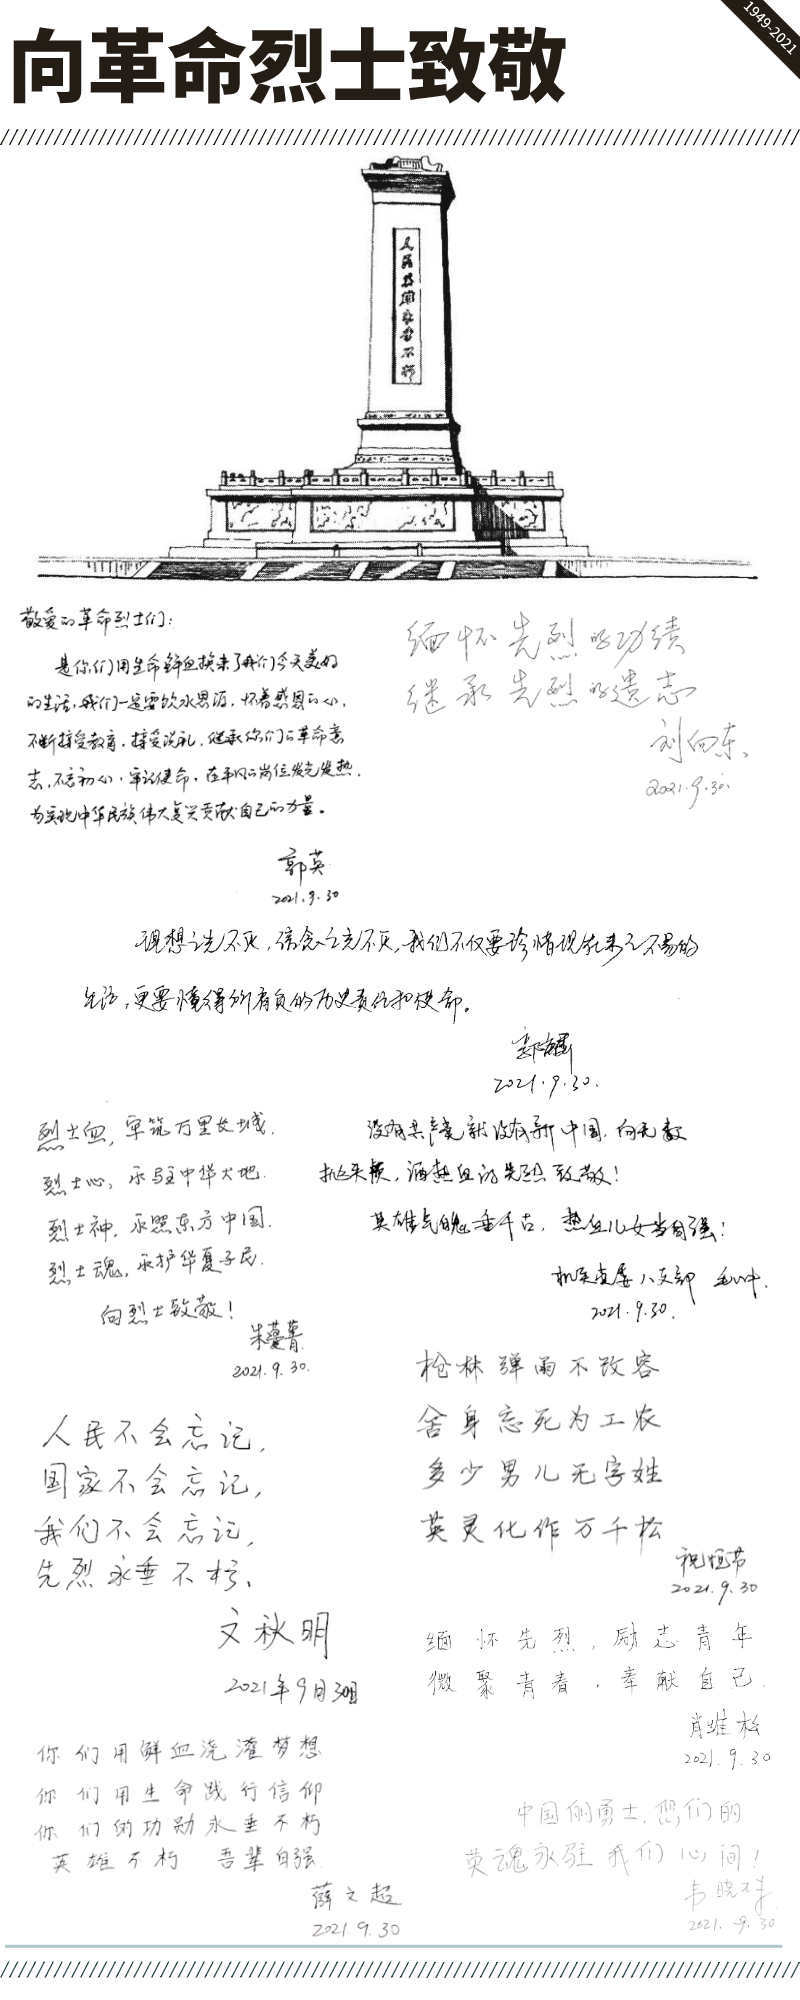 1949-2021
向革命烈士致敬
人民英雄永垂不朽
敬爱的革命烈士们：
是你们用生命鲜血换来了我们今天美好
的生活，我们一定要饮水思源，怀着感恩的心，
不断接受教育，接受洗礼，继承你们的革命意
志，不忘初心，牢记使命，在平凡的岗位发光发热，
为实现中华民族伟大复兴贡献自己的力量。
郭英
2021.9.30
缅怀先烈的功绩
继承先烈的遗志
刘向东
2021.9.30.
理想之光不灭，信念之光不灭，我们不仅要珍惜现在来之不易的
生活，更要懂得所肩负的历史责任和使命。
2021.9.30.
烈士血，牢筑万里长城．
烈士心，永驻中华大地．
烈士神，永照东方中国．
烈士魂，永护华夏子民．
向烈士致敬！
朱蔓菁
2021.9.30.
没有共产党就没有新中国，向无数
抛头颅，洒热血的先烈致敬！
英雄气魄垂千古，热血儿女当自强！
机关党委八支部
2021.9.30.
枪林弹雨不改容
舍身忘死为工农
多少男儿无字姓
英灵化作万千松
祝恒节
2021.9.30
人民不会忘记，
国家不会忘记，
我们不会忘记，
先烈永垂不朽、
文秋明
2021年9月30日
缅怀先烈，励志青年
微聚青春，奉献自己．
肖维松
2021.9.30
你们用鲜血浇灌梦想
你们用生命践行信仰
你们的功勋永垂不朽
英雄不朽 吾辈自强
薛文超
2021.9.30
中国的勇士，您们的
英魂永驻我们心间！
韦晓
2021.9.30